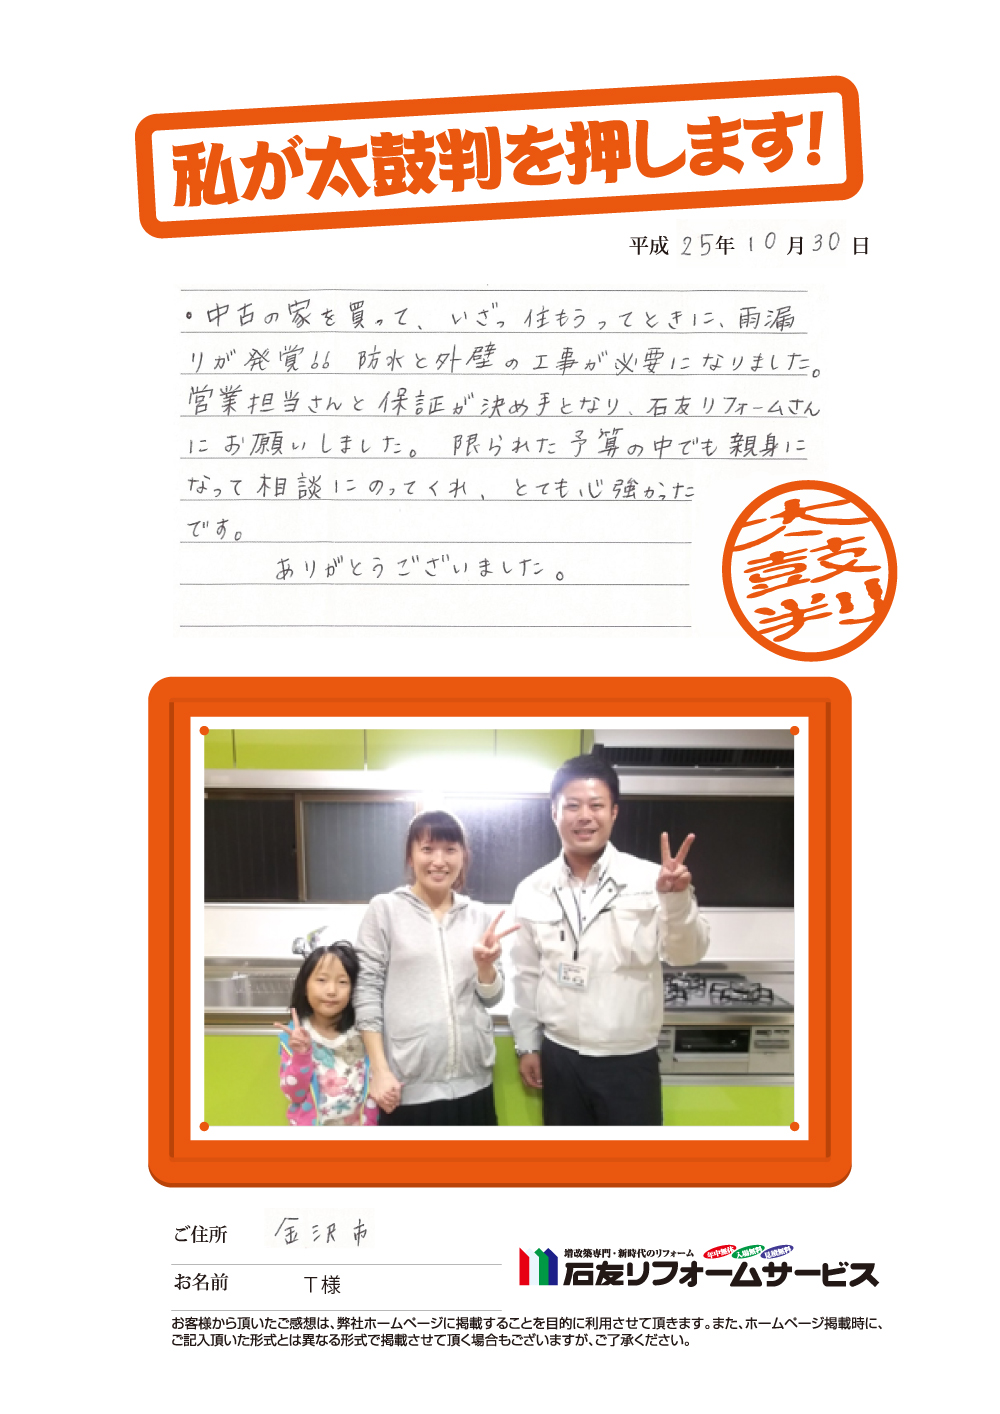 私が太鼓判を押します!
平成 25年 10月30日
・中古の家を買って、いざっ住もうってときに、雨漏
りが発覚!! 防水と外壁の工事が必要になりました。
営業担当さんと保証が決め手となり、石友リフォームさん
にお願いしました。 限られた予算の中でも親身に
なって相談にのってくれ、とても心強かった
です。
ありがとうございました。
太鼓判
ご住所 金沢市
増改築専門・新時代のリフォーム 年中無休 入場無料 見積無料
石友リフォームサービス
お名前 T様
お客様から頂いたご感想は、弊社ホームページに掲載することを目的に利用させて頂きます。また、ホームページ掲載時に、
ご記入頂いた形式とは異なる形式で掲載させて頂く場合もございますが、ご了承ください。